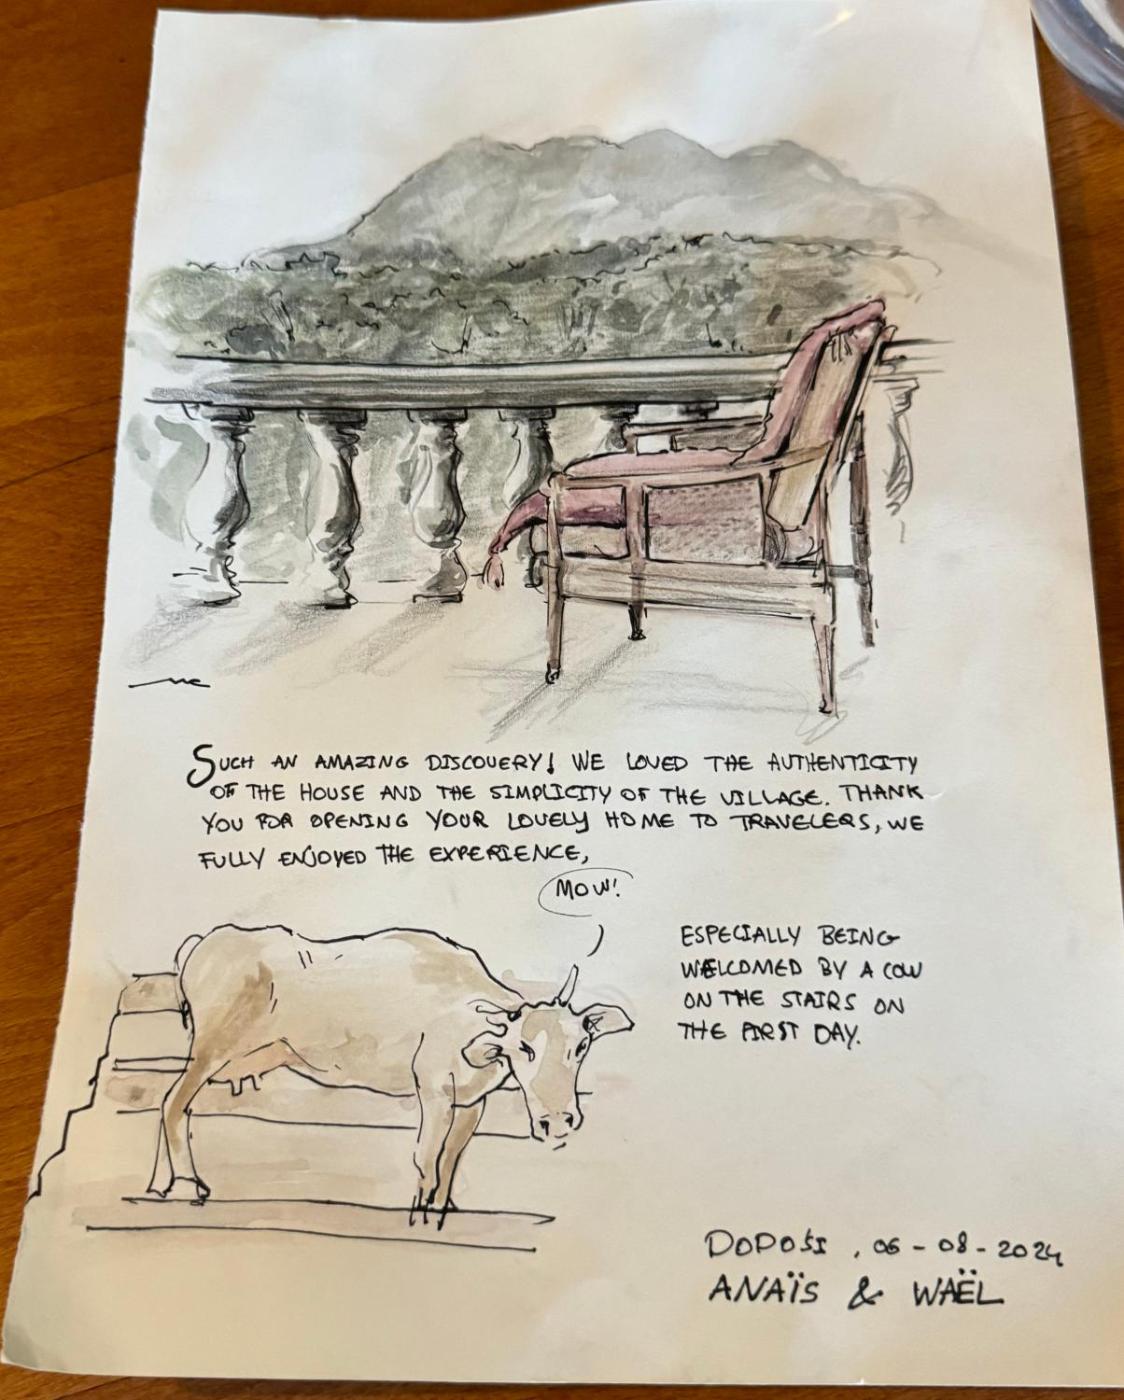 SUCH AN AMAZING DISCOVERY! WE LOVED THE AUTHENTICITY
OF THE HOUSE AND THE SIMPLICITY OF THE VILLAGE. THANK
YOU FOR OPENING YOUR LOVELY HOME TO TRAVELERS, WE
FULLY ENJOYED THE EXPERIENCE,
MOW!
ESPECIALLY BEING
WELCOMED BY A COW
ON THE STAIRS ON
THE FIRST DAY.
, 06-08-2024
ANAÏS & WAËL